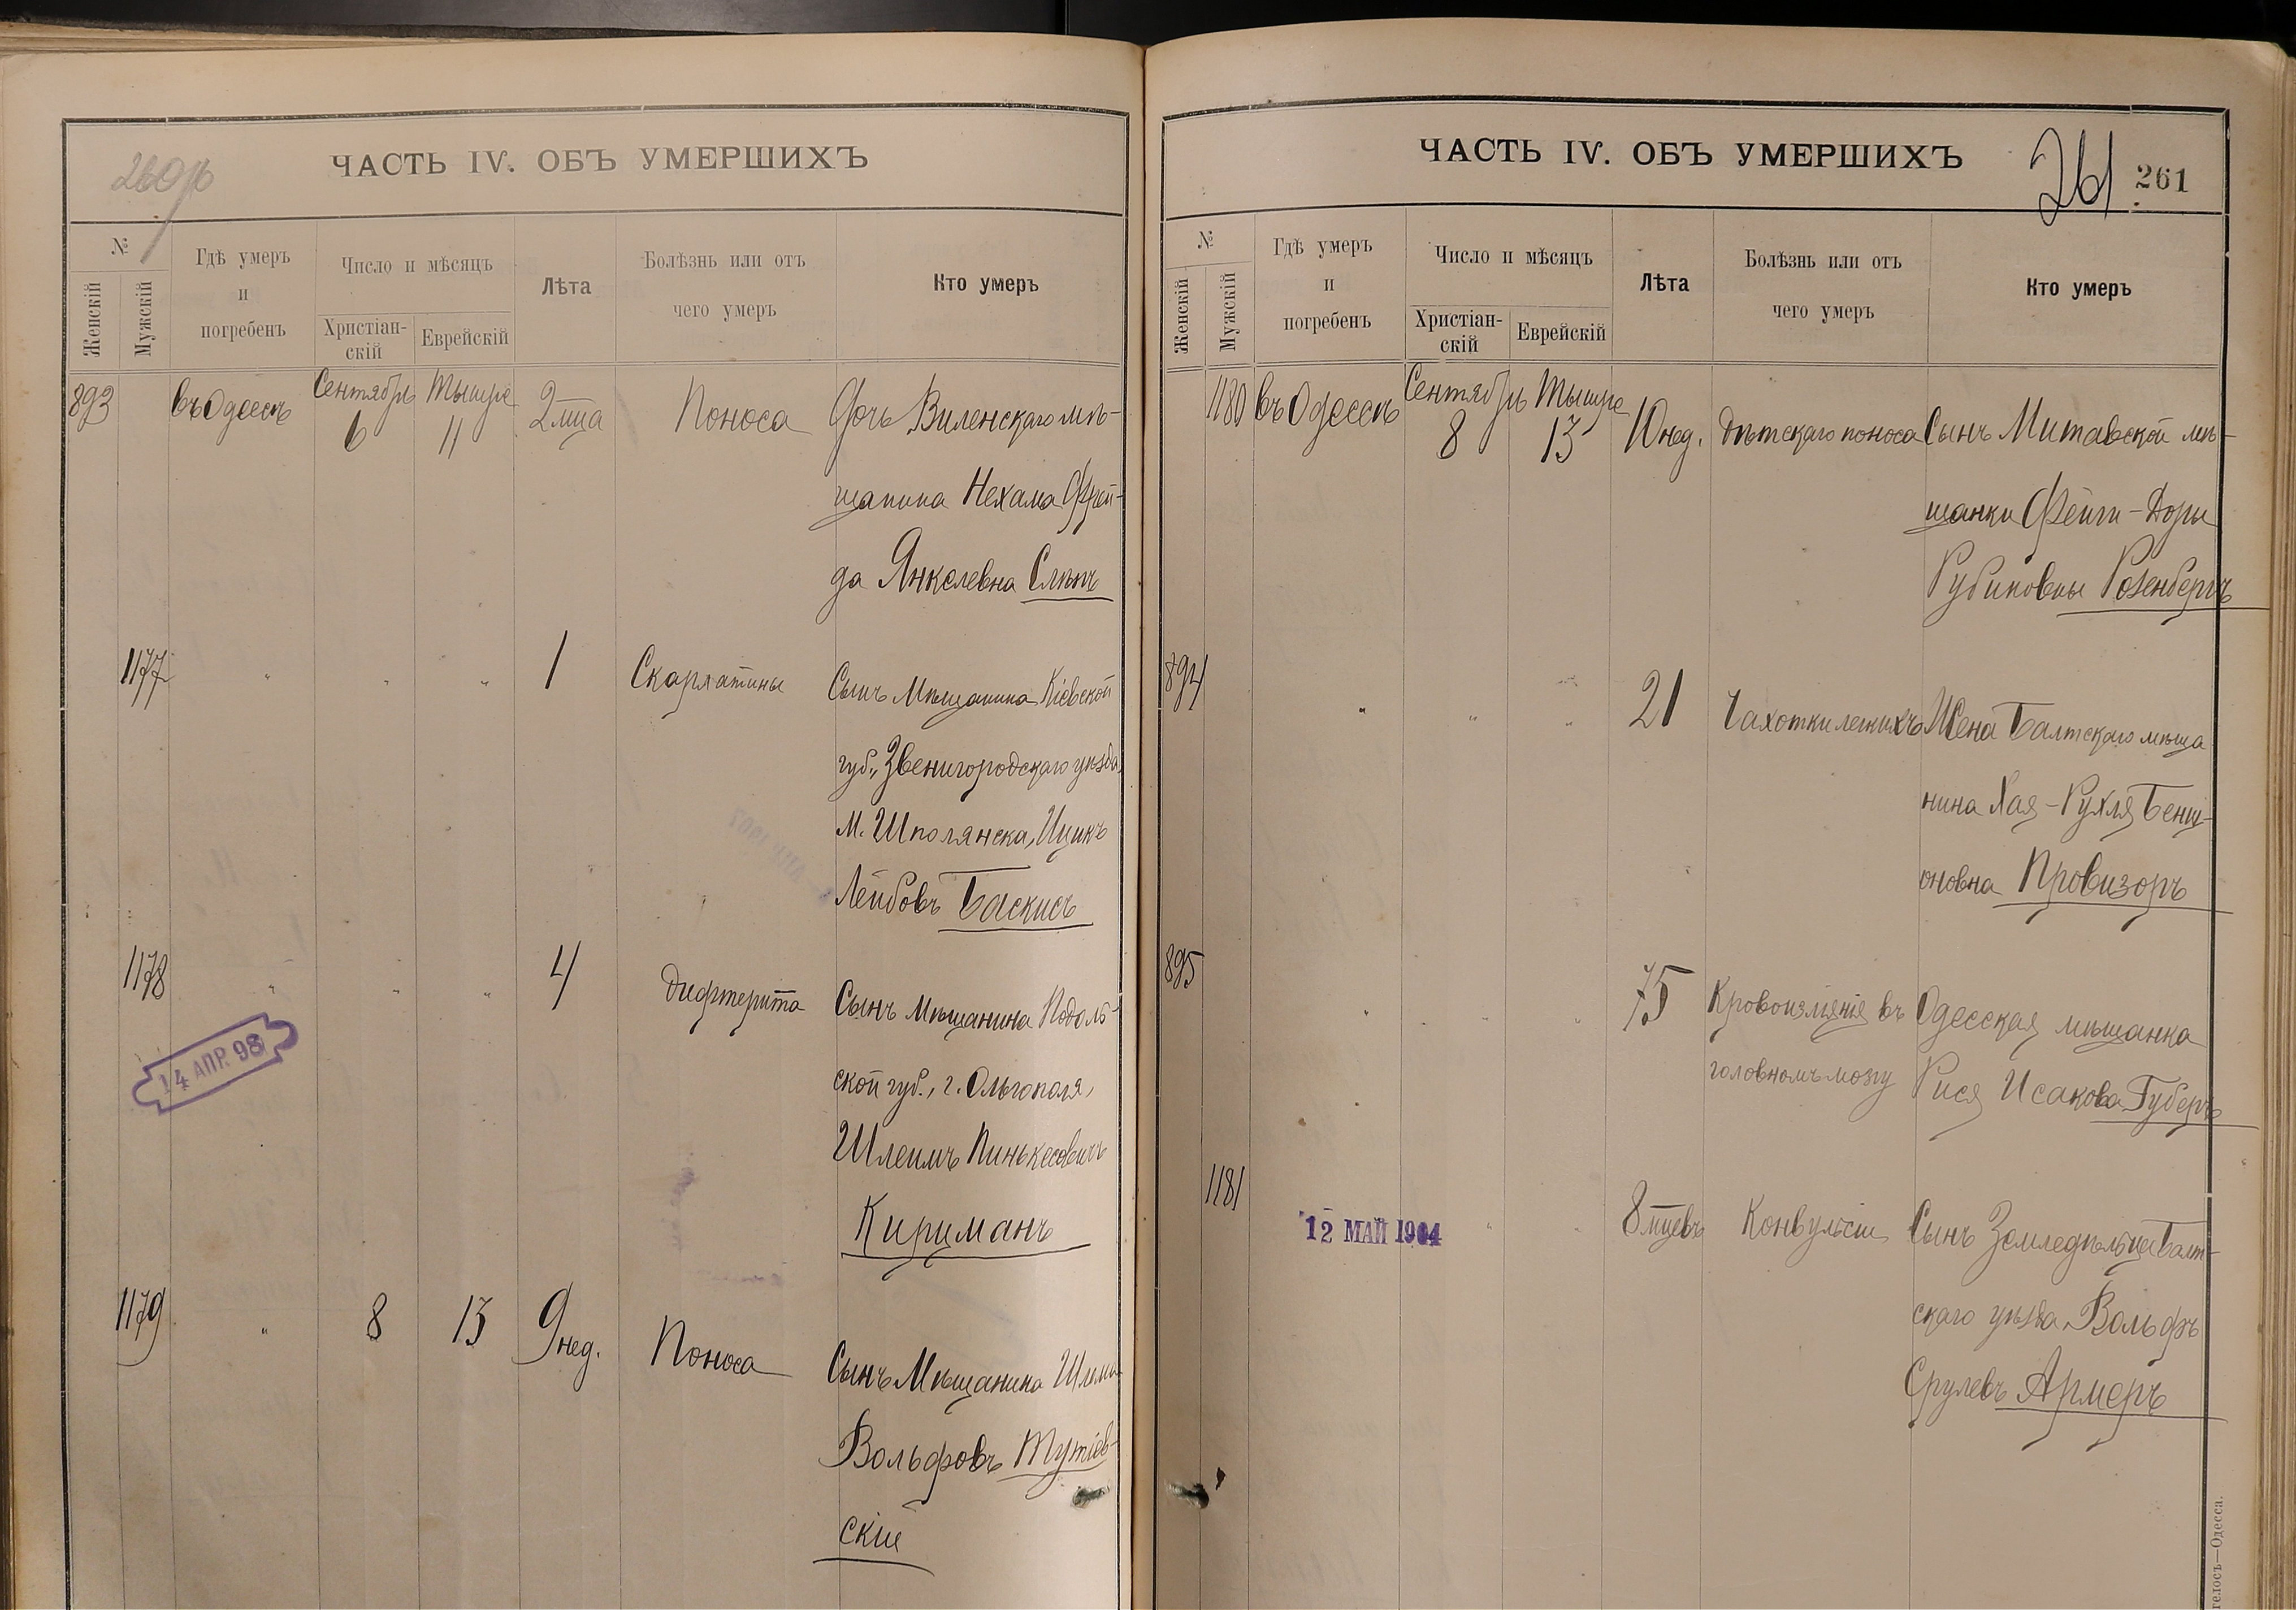 260 об
ЧАСТЬ IV. ОБЪ УМЕРШИХЪ
№
Женскій
Мужскій
Гдѣ умеръ
и
погребенъ
Число и мѣсяцъ
Христіан-
скій
Еврейскій
Лѣта
Болѣзнь или отъ
чего умеръ
Кто умеръ
893 въ Одессѣ Сентябрь 6 Тышре 11 2 м-ца Поноса Дочь Виленскаго мѣ-
щанина Нехама Фрей-
да Янкелевна
1177 " " " 1 Скарлатины Сынъ Мѣщанина Кіевской
губ., Звенигородскаго уѣзда,
м. Шполянска, Ицикъ
Лейбовъ Баскисъ
1178 " " " 4 Дифтерита Сынъ Мѣщанина Подоль-
ской губ., г. Ольгополя,
Шлеимъ Пинькесовичъ
Кирцманъ
14 АПР. 98
1179 " 8 13 9 нед. Поноса Сынъ Мѣщанина Шлема
Вольфовъ Тутіев-
скій
ЧАСТЬ IV. ОБЪ УМЕРШИХЪ
261
261
№
Женскій
Мужскій
Гдѣ умеръ
и
погребенъ
Число и мѣсяцъ
Христіан-
скій
Еврейскій
Лѣта
Болѣзнь или отъ
чего умеръ
Кто умеръ
1180 въ Одессѣ Сентябрь 8 Тышре 13 10 нед. Дѣтскаго поноса Сынъ Митавской мѣ-
щанки Фейги-Доры
Рубиновны Розенбергъ
894 " " " 21 Чахотки легкихъ Жена Балтскаго мѣща
нина Хая-Рухля Бенці-
оновна Провизоръ
895 " " " 75 Кровоизліянія въ Одесская мѣщанка
головномъ мозгу Рися Исакова Губеръ
1181 " " 8 м-цевъ Конвульсіи Сынъ Земледѣльца Балт-
12 МАЙ 1904
скаго уѣзда, Вольфъ
Срулевъ Армеръ
елосъ—Одесса.